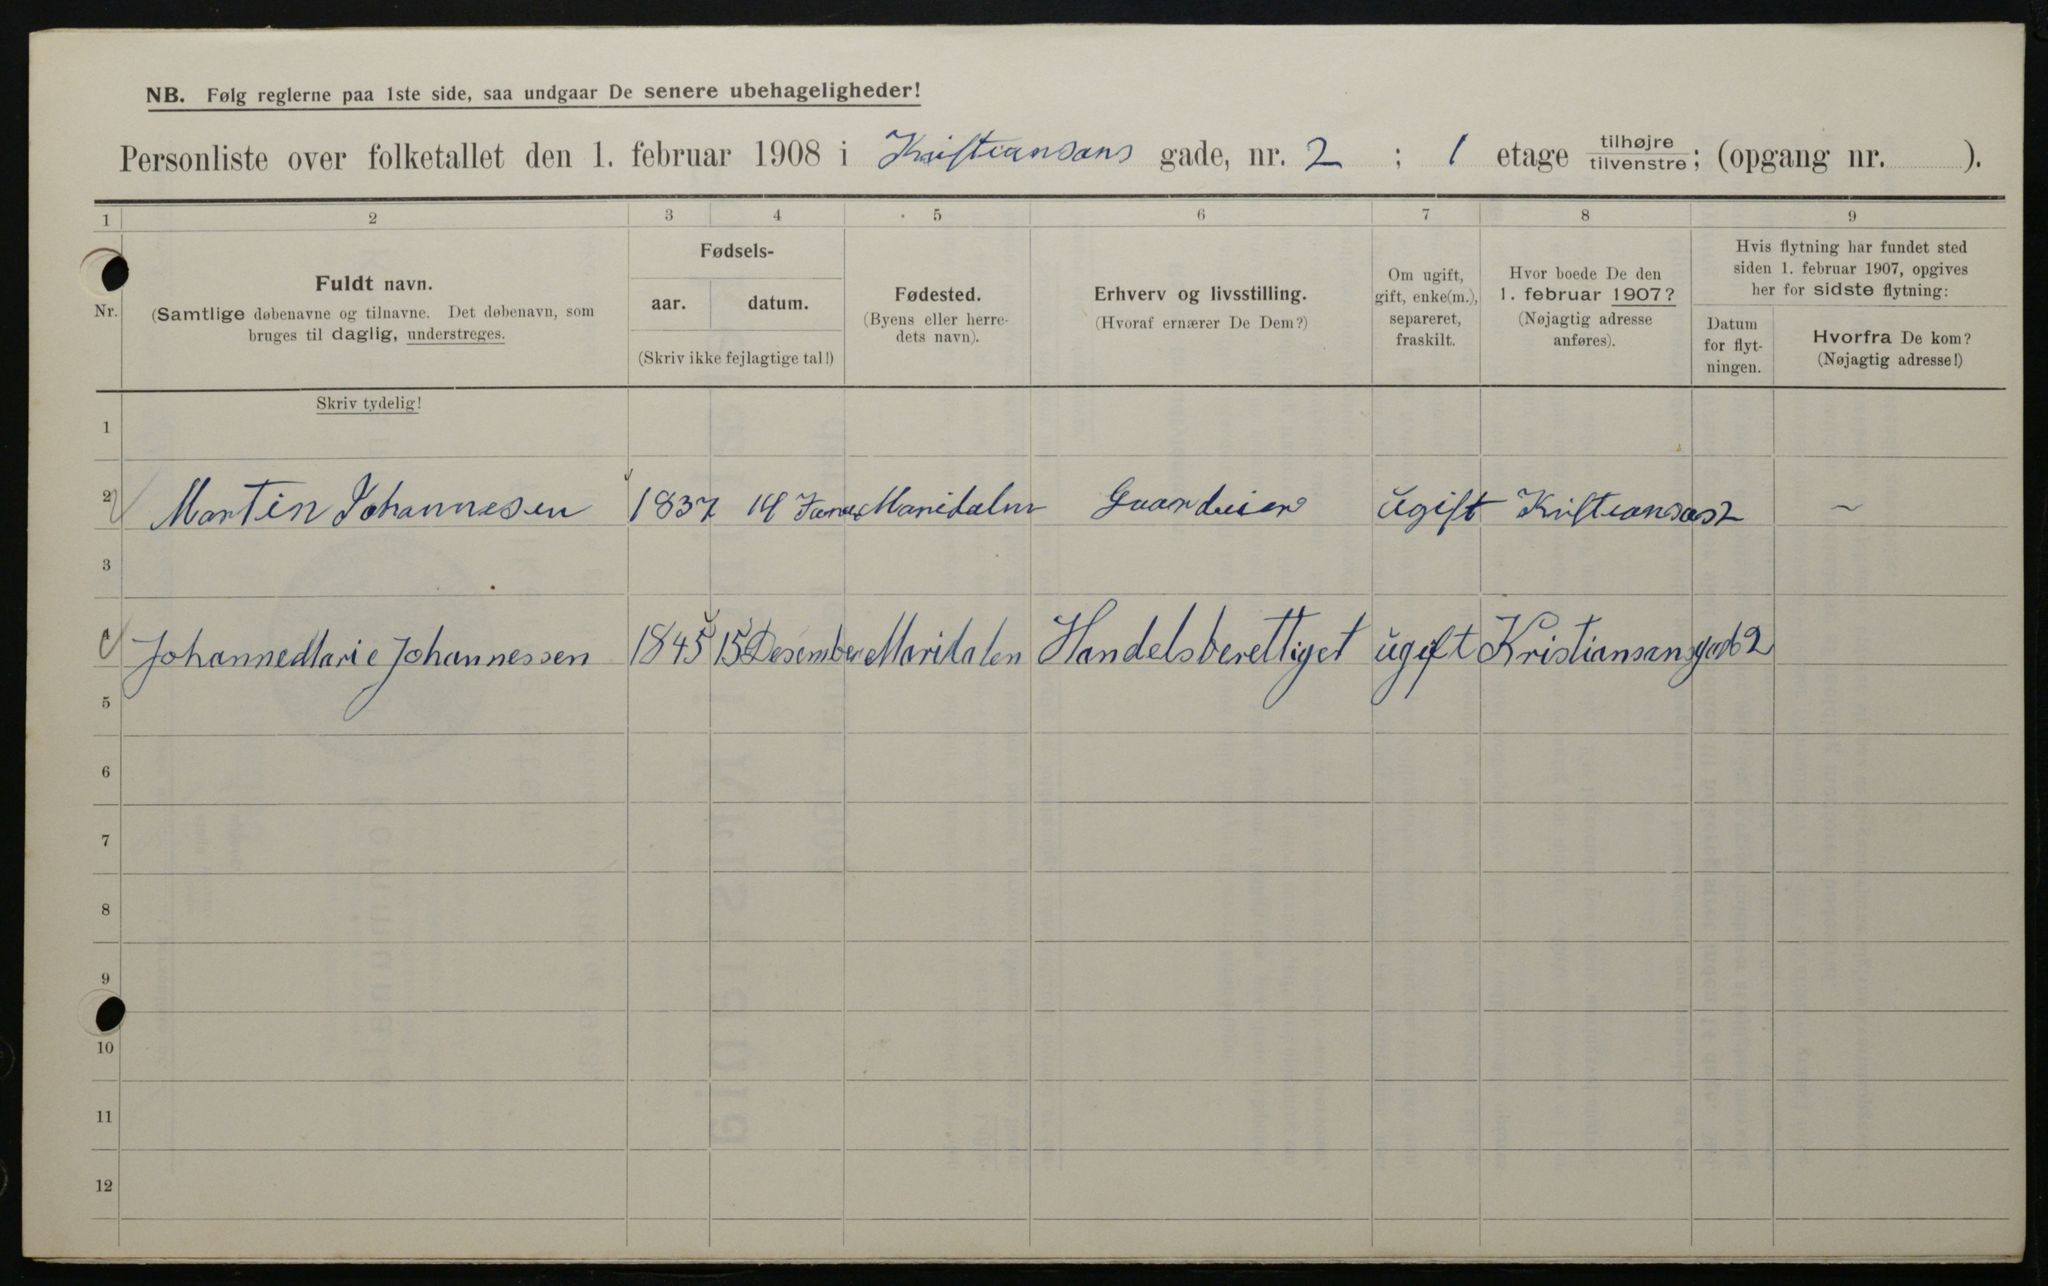 NB. Følg reglerne paa 1ste side, saa undgaar De senere ubehageligheder!
Personliste over folketallet den 1. februar 1908 i Kristiansans gade, nr. 2 ; 1 etage tilhøjre tilvenstre; (opgang nr. ).
1 2 3 4 5 6 7 8 9
Nr.
Fuldt navn.
(Samtlige døbenavne og tilnavne. Det døbenavn, som
bruges til daglig, understreges.
Fødsels-
aar. datum.
(Skriv ikke fejlagtige tal!)
Fødested.
(Byens eller herre-
dets navn).
Erhverv og livsstilling.
(Hvoraf ernærer De Dem?)
Om ugift,
gift, enke(m.),
separeret,
fraskilt.
Hvor boede De den
1. februar 1907?
(Nøjagtig adresse
anføres).
Hvis flytning har fundet sted
siden 1. februar 1907, opgives
her for sidste flytning:
Datum
for flyt-
ningen.
Hvorfra De kom?
(Nøjagtig adresse!)
Skriv tydelig!
1
2 Martin Johannesen 1837 14 Maridalen ugift Kristiansans 2 ~
3
Johanne Marie Johannessen 1845 15 Desember Maridalen Handelsberettiget ugift Kristiansansgade 2
5
6
7
8
9
10
11
12